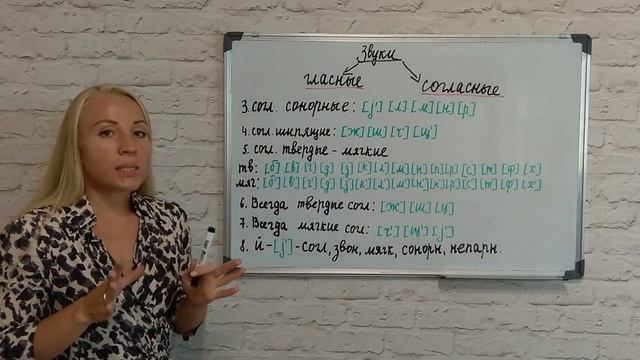 Звуки
гласные согласные
3. согл. сонорные: [j'] [л] [м] [н] [р]
4. согл. шипящие: [ж] [ш] [ч'] [щ']
5. согл. твердые - мягкие
тв: [б] [в] [г] [д] [з] [к] [л] [м] [н] [п] [р] [с] [т] [ф] [х]
мяг: [б'] [в'] [г'] [д'] [з'] [к'] [л'] [м'] [н'] [п'] [р'] [с'] [т'] [ф'] [х']
6. Всегда твердые согл: [ж] [ш] [ц]
7. Всегда мягкие согл: [ч'] [щ'] [j']
8. Й - [j'] - согл, звон, мягк, сонорн, непарн.